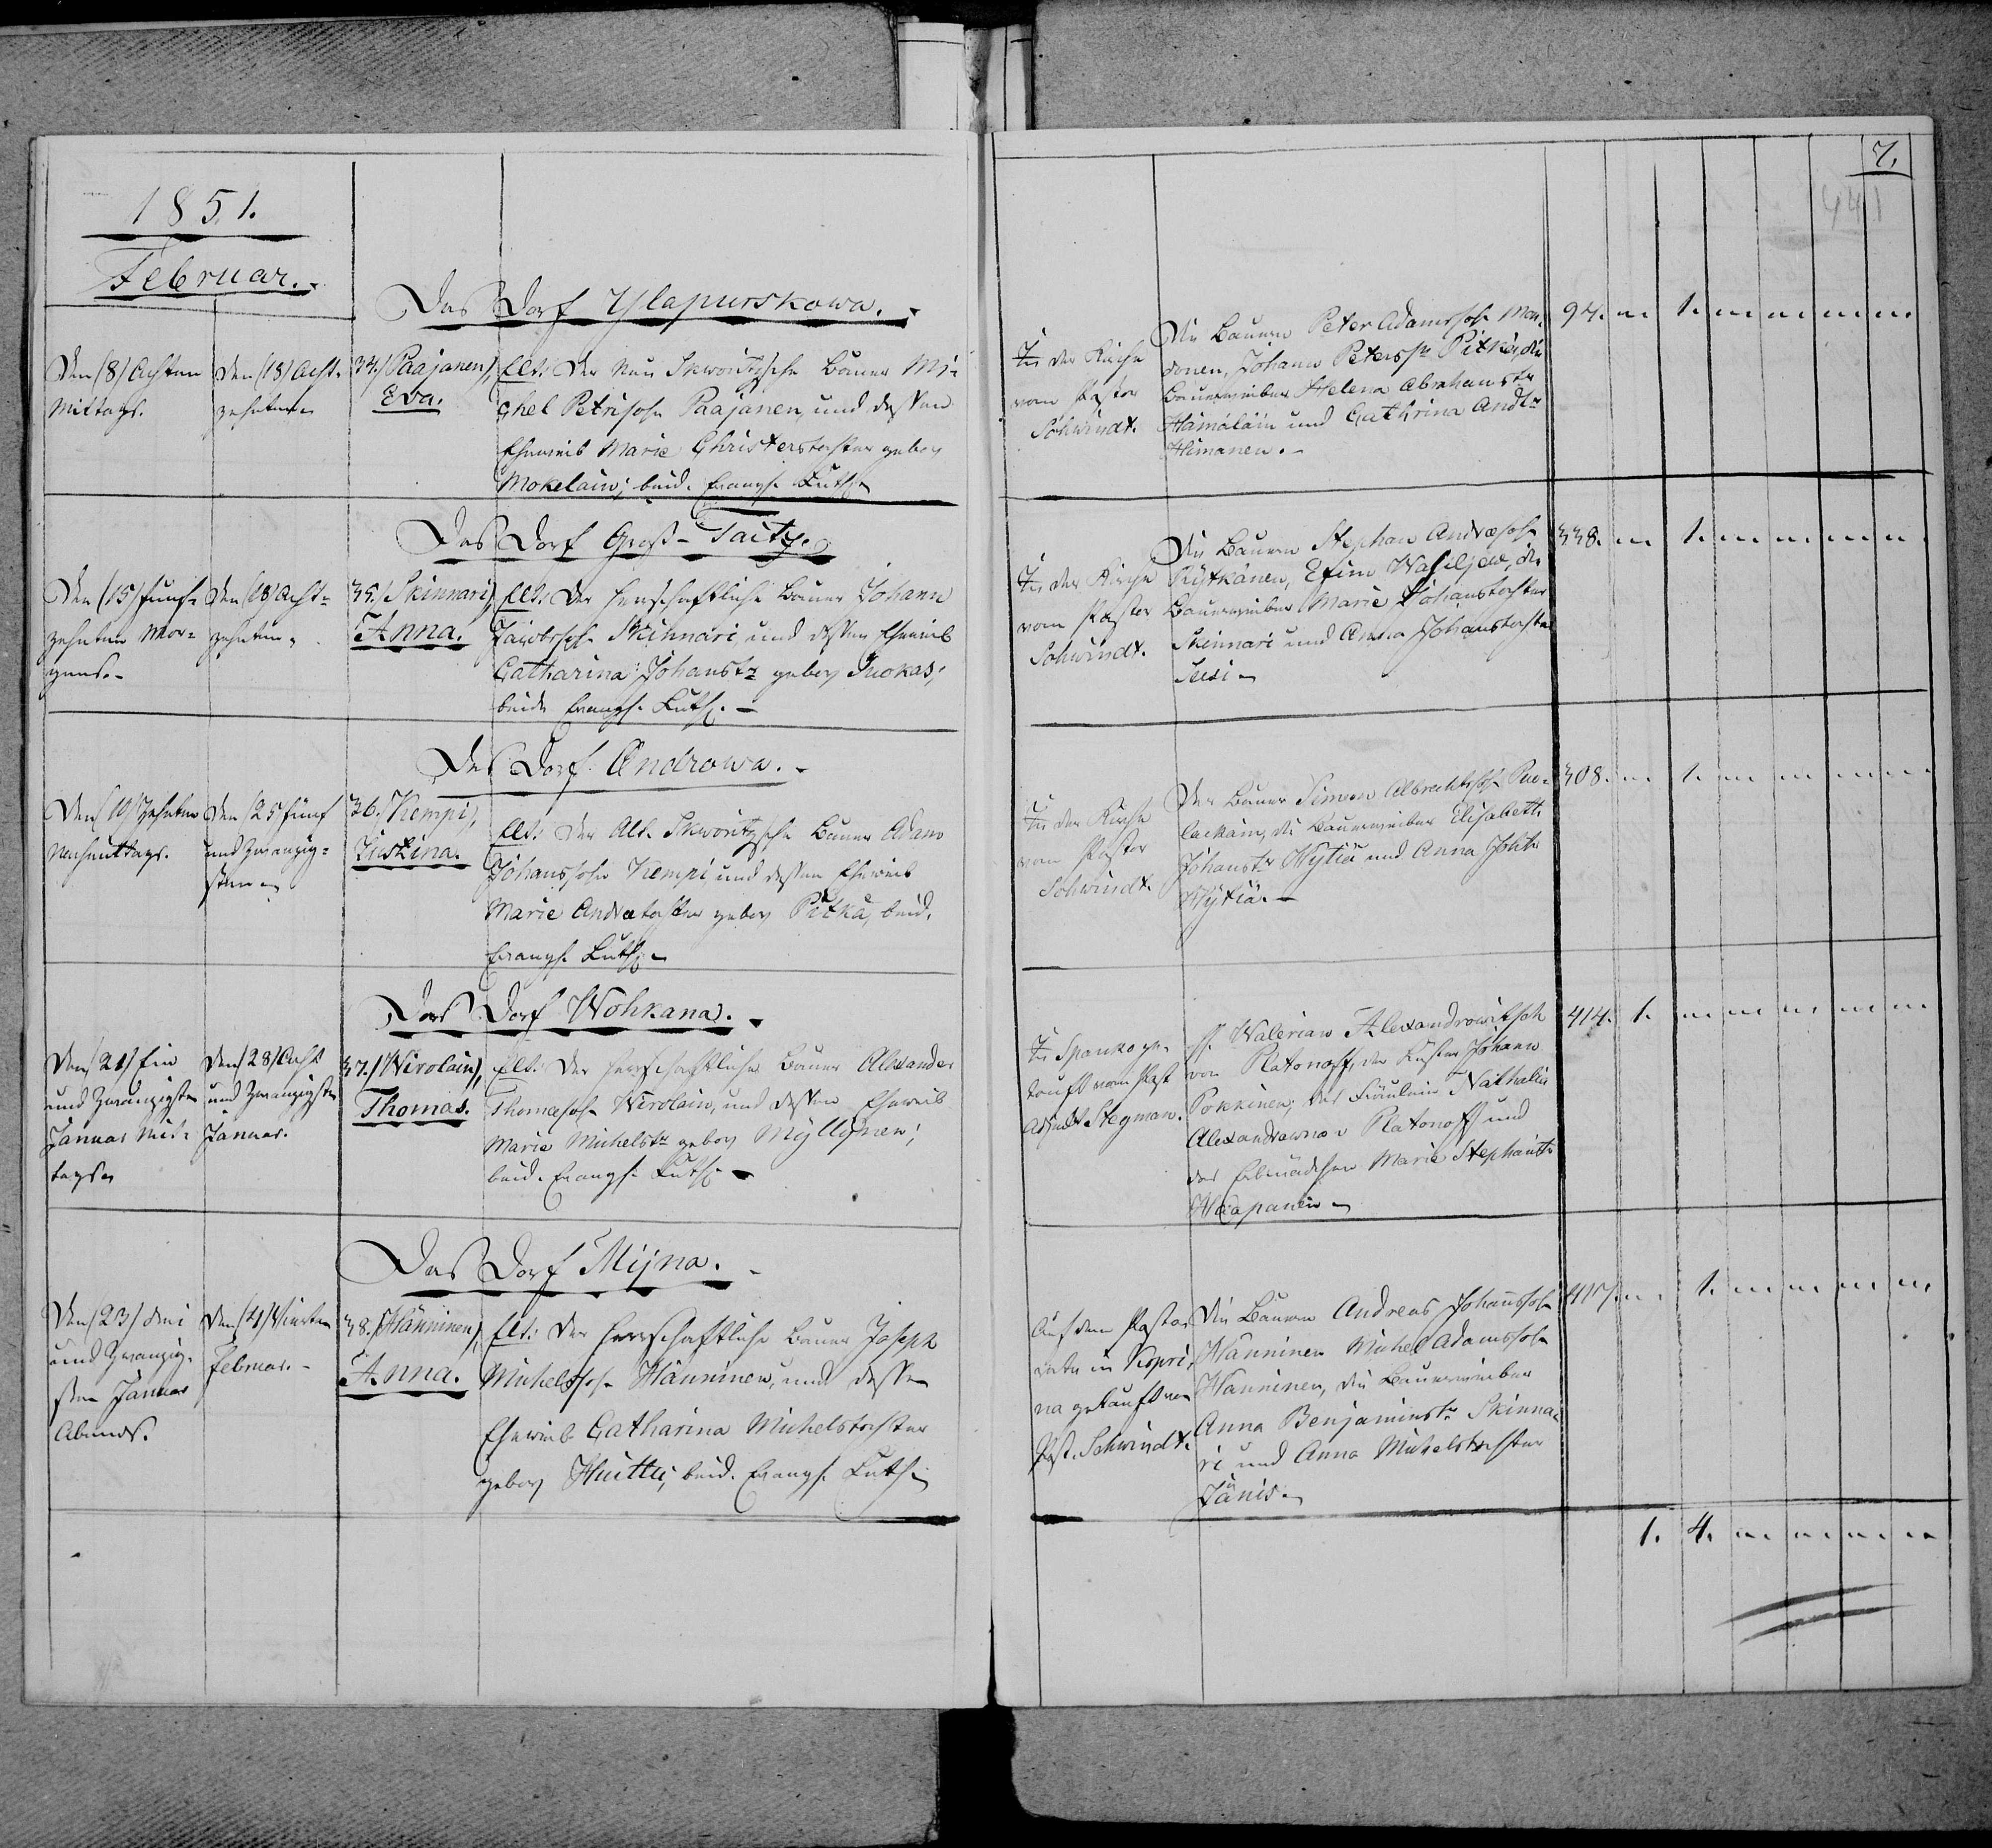 1851.
Februar.
Das Dorf Ylapurskowa.
Den (8) Achten
Mittags.
Den (18) Acht-
zehnten
34.) (Paajanen),
Eva.
Elt: Der Neu Skworitzsche Bauer Mi-
chel Petrisohn Paajanen, und dessen
Eheweib Marie Christerstochter gebor
Mokelain; beid. Evangl. Luth.
Das Dorf Groß-Taitz.
Den (15) fünf-
zehnten Mor-
gens.
Den (18) Acht-
zehnten.
35.) Skinnari),
Anna.
Elt: Der herrschaftliche Bauer Johann
Jacobsohn Skinnari, und dessen Eheweib
Catharina Johanstr gebor Suokas;
beide Evangl. Luth.
Das Dorf Androwa.
Den (10) Zehnten
Nachmittags.
Den (25 fünf
und Zwanzig-
sten
36.) Kempi),
Justina.
Elt: Der Alt. Skworitzsche Bauer Adam
Johanssohn Kempi und dessen Eheweib
Marie Andreetochter gebor Pitkä, beid.
Evangl. Luth.
Das Dorf Wohkana.
Den (21) Ein
und Zwanzigsten
Januar Mit-
tags
Den (28) Acht
und Zwanzigsten
Januar.
37.) (Wirolain),
Thomas.
Elt: Der herrschaftliche Bauer Alexander
Thomasohn Wirolain, und dessen Eheweib
Marie Michelstr gebor Myllynen;
beid. Evangl. Luth.
Das Dorf Mijna.
Den (23) drei
und Zwanzig-
sten Januar
Abends.
Den (4) Vierten
Februar.
38.) (Hänninen),
Anna.
Elt: Der herrschaftliche Bauer Joseph
Michelssohn Hänninen, und dessen
Eheweib Catharina Michelstochter
gebor Huittu, beid. Evangl. Luth.
7.
441
In der Kirche
vom Pastor
Schwindt.
Die Bauern Peter Adamssohn Mon-
donen, Johann Peterss Pitkä, die
Bauerweiber Helena Abrahamstr
Hämäläin und Cathrina Andtr
Himanen.
94. 1.
In der Kirche
vom Pastor
Schwindt.
Die Bauern Stephan Andreesohn
Rytkänen, Efim Wasiljew, die
Bauerweiber Marie Johanstochter
Skinnari und Anna Johanstochter
Susi
338. 1.
In der Kirche
vom Pastor
Schwindt.
Der Bauer Simeon Albrechtssohn Pu-
lackain, die Bauerweiber Elisabeth
Johanstr Wytiä und Anna Joh.tr
Wytiä.
308. 1.
In Spanko ge-
tauft vom Past
Adjunkt Stegman.
H. Walerian Alexandrowitsch
von Platonoff, der Küster Johann
Pokkinen; das Fräulein Nathalie
Alexandrowna v Platonoff und
das Erbmädchen Marie Stephanstr
Haapanen
414. 1.
Auf dem Pastor
rate in Kopri-
na getauft von
Past. Schwindt.
Die Bauern Andreas Johanssohn
Hänninen Michel Adamssohn
Hänninen, die Bauerweiber
Anna Benjaminstr Skinna-
ri und Anna Michelstochter
Jänis.
417. 1.
1. 4.